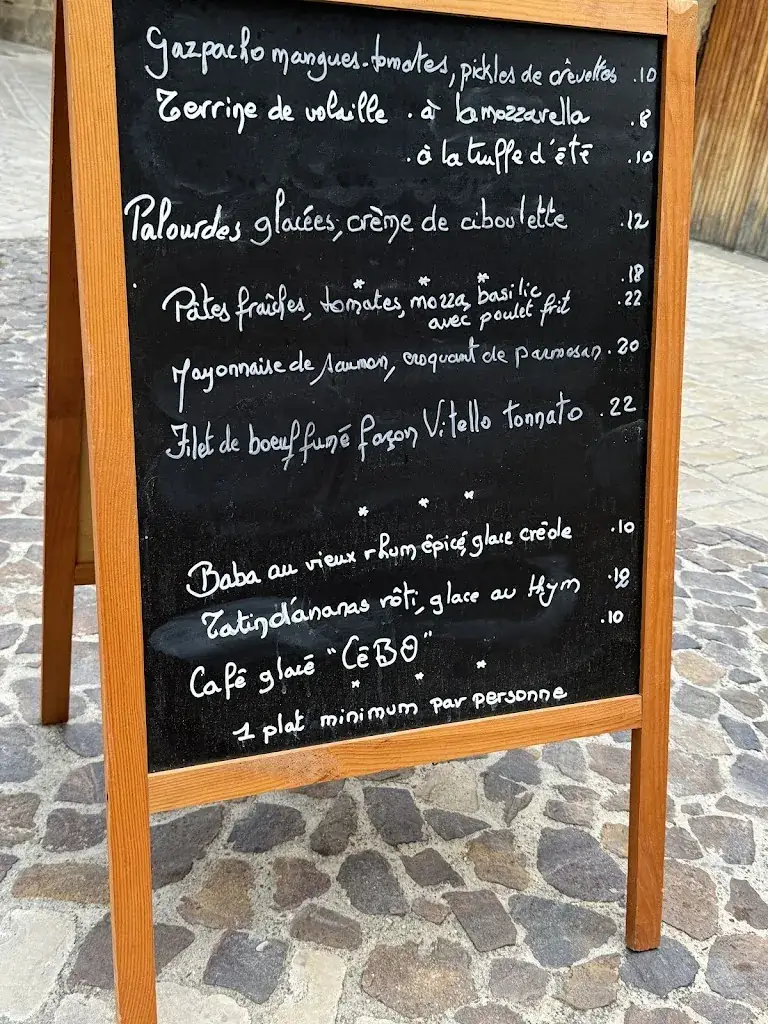 Gazpacho mangues-tomates, pickles de crevettes .10
Terrine de volaille . à la mozzarella .8
. à la truffe d'été .10
Palourdes glacées, crème de ciboulette .12
* * *
Pâtes fraîches, tomates, mozza, basilic .18
avec poulet frit .22
Mayonnaise de saumon, croquant de parmesan .20
Filet de boeuf fumé façon Vitello tonnato .22
* * *
Baba au vieux rhum épicé, glace créole .10
Tatin d'ananas rôti, glace au thym
Café glacé "CéBO" .10
* * *
1 plat minimum par personne